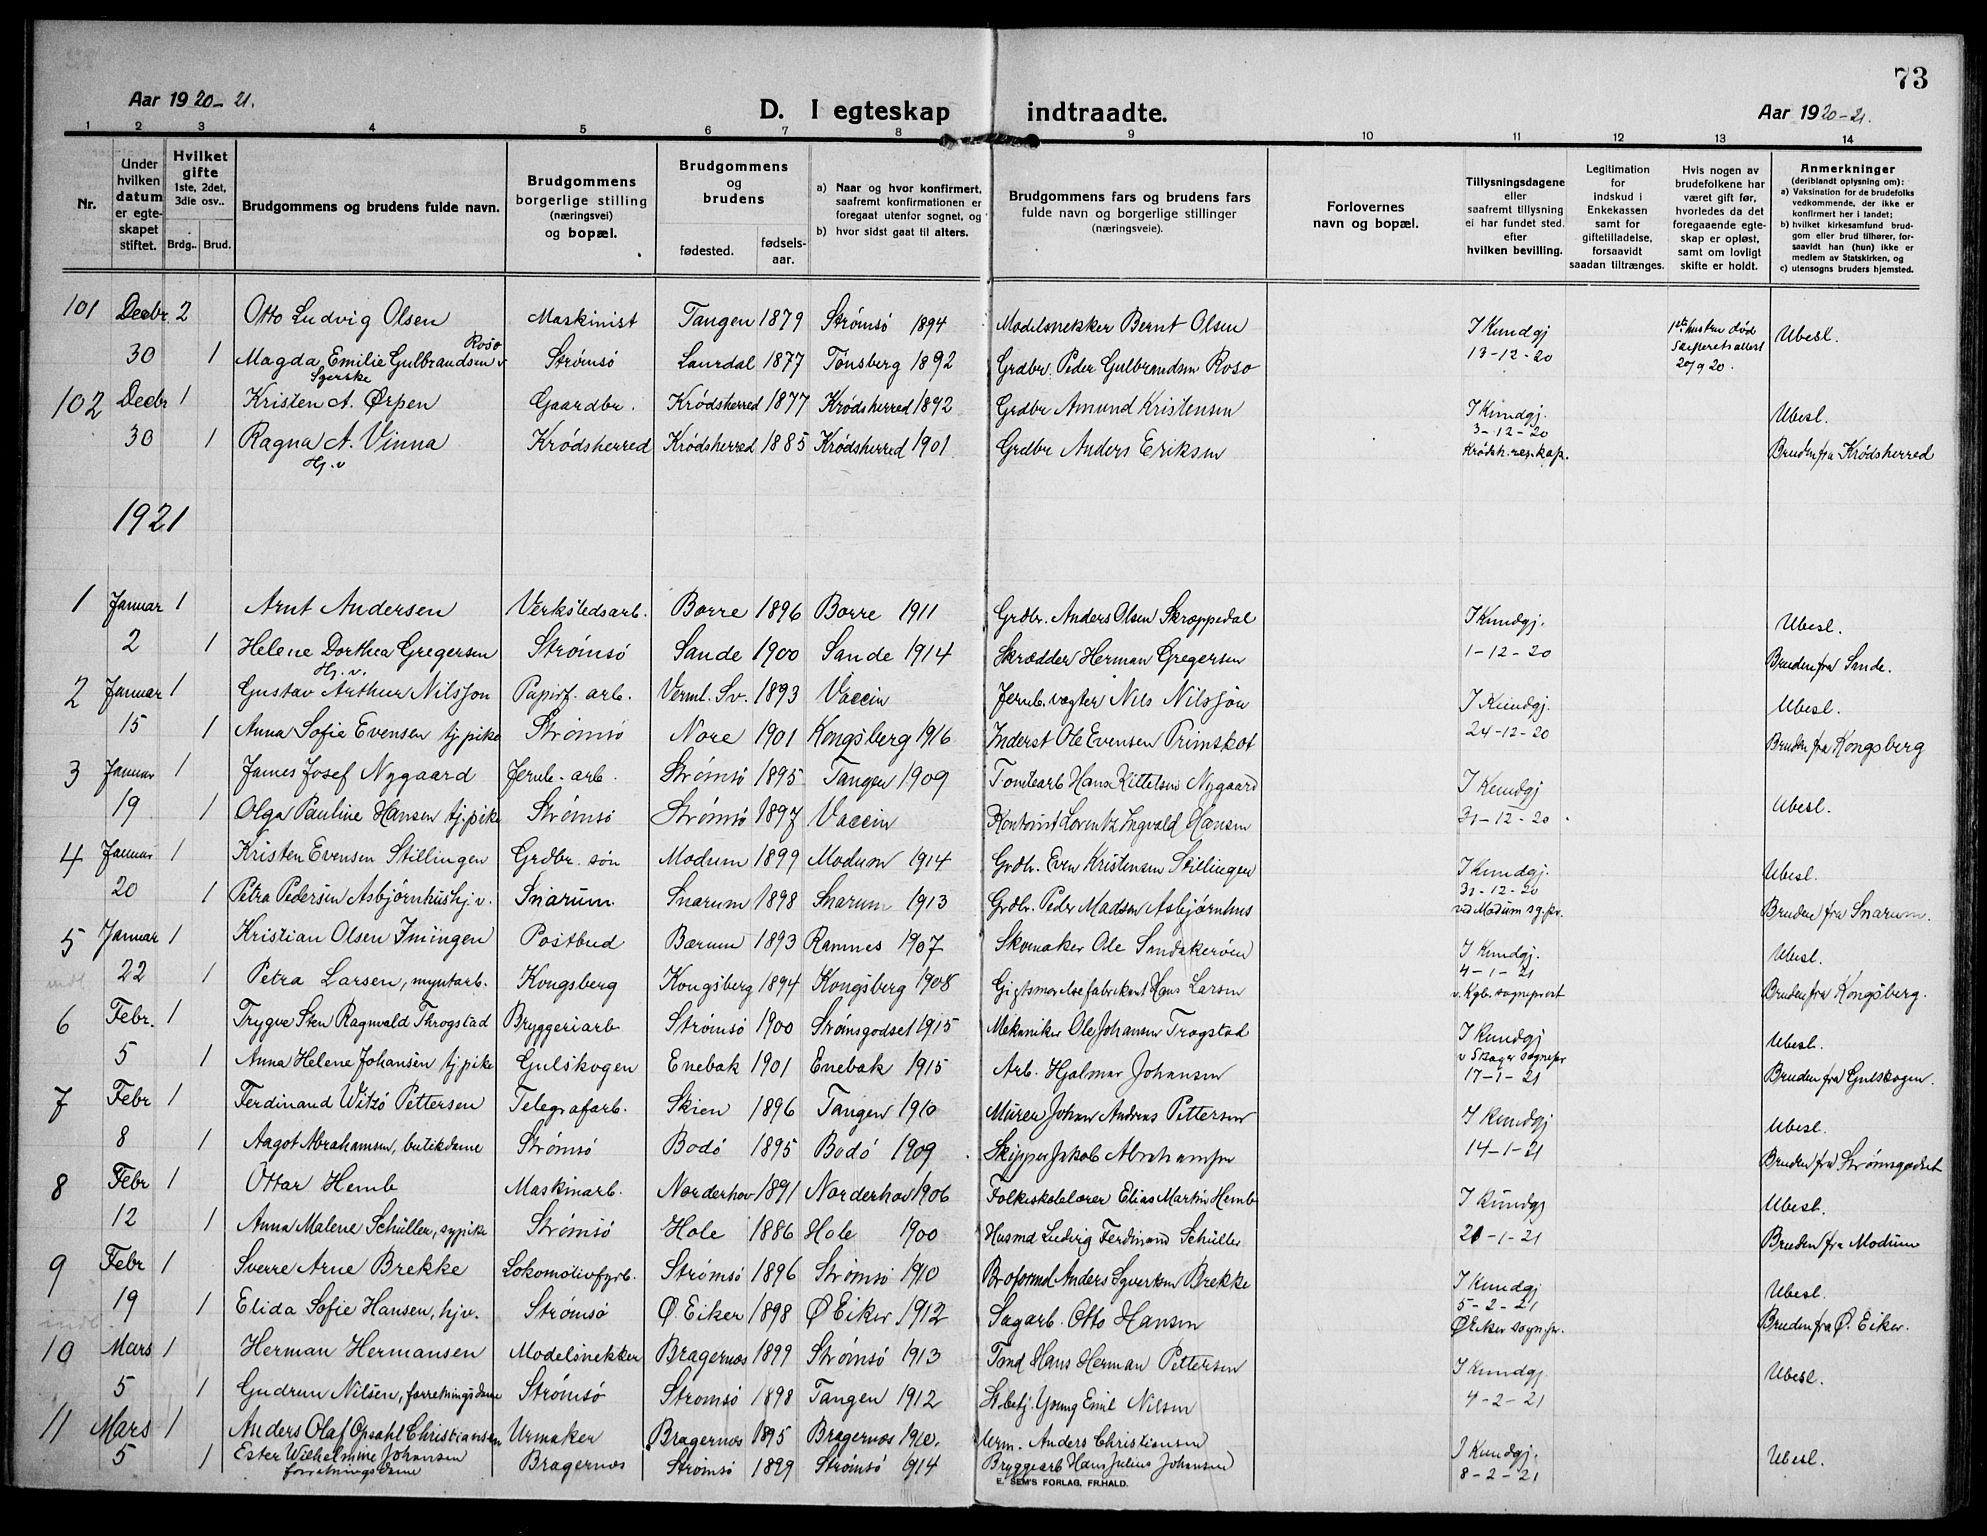 73
Aar 1920-21.
D. I egteskap indtraadte.
Aar 1920-21.
1 2 3 4 5 6 7 8 9 10 11 12 13 14
Nr.
Under
hvilken
datum
er egte-
skapet
stiftet.
Hvilket
gifte
1ste, 2det,
3die osv..
Brdg.. Brud.
Brudgommens og brudens fulde navn.
Brudgommens
borgerlige stilling
(næringsvei)
og bopæl.
Brudgommens
og
brudens
fødested.
fødsels-
aar.
a) Naar og hvor konfirmert,
saafremt konfirmationen er
foregaat utenfor sognet, og
b) hvor sidst gaat til alters.
Brudgommens fars og brudens fars
fulde navn og borgerlige stillinger
(næringsveie).
Forlovernes
navn og bopæl.
Tillysningsdagene
eller
saafremt tillysning
ei har fundet sted.
efter
hvilken bevilling.
Legitimation
for
indskud i
Enkekassen
samt for
giftetilladelse,
forsaavidt
saadan tiltrænges.
Hvis nogen av
brudefolkene har
været gift før,
hvorledes da det
foregaaende egte-
skap er opløst,
samt om lovligt
skifte er holdt.
Anmerkninger
(deriblandt oplysning om):
a) Vaksination for de brudefolks
vedkommende, der ikke er
konfirmert her i landet;
b) hvilket kirkesamfund brud-
gom eller brud tilhører, for-
saavidt han (hun) ikke er
medlem av Statskirken, og
c) utensogns bruders hjemsted.
101 Decbr 2 Otto Ludvig Olsen Maskinist Tangen 1879 Strømsø 1894 Modelsnekker Bernt Olsen I Kundgj 1ste hustru død Ubesl.
Roso
30 1 Magda Emilie Gulbrandsen Strømsø Laurdal 1877 Tønsberg 1892 Grdbr. Peder Gulbrandsen Roso 13-12-20 20/9 20.
Syerske
102 Decbr 1 Kristen A. Ørpen Gaardbr. Krødsherred 1877 Krødsherred 1892 Grdbr Amund Kristensen I Kundgj. Ubesl.
30 1 Ragna A. Vinna Krødsherred Krødsherred 1885 Krødsherred 1901 Grdbr Anders Eriksen 3-12-20 Bruden fra Krødsherred
Hj. v Krødsh. res. kap.
1921
1 Januar 1 Arnt Andersen Verkstedsarb. Borre 1896 Borre 1911 Grdbr. Anders Olsen Skræppedal I Kundgj. Ubesl.
2 1 Helene Dorthea Gregersen Strømsø Sande 1900 Sande 1914 Skrædder Herman Gregersen 1-12-20 Bruden fra Sande.
Hj. v.
2 Januar 1 Gustav Arthur Nilsson Papirf. arb. Verml. Sv. 1893 Vaccin Jernb. vogter Nils Nilsson I Kundgj. Ubesl.
15 1 Anna Sofie Evensen tj. pike Strømsø Nore 1901 Kongsberg 1916 Inderst Ole Evensen Primskot 24-12-20 Bruden fra Kongsberg
3 Januar 1 James Josef Nygaard Jernb. arb. Strømsø 1895 Tangen 1909 Tomtearb Hans Kittelsen Nygaard I Kundgj
19 1 Olga Pauline Hansen tj. pike Strømsø Strømsø 1897 Vaccin Kontorist Lorentz Ingvald Hansen 31-12-20. Ubesl.
4 Januar 1 Kristen Evensen Stillingen Grdbr. søn Modum 1899 Modum 1914 Grdbr. Even Kristensen Stillingen I Kundgj. Ubesl.
20 1 Petra Pedersen Asbjørnhus hj. v. Snarum Snarum 1898 Snarum 1913 Grdbr. Peder Madsen Asbjørnhus 31-12-20 Bruden fra Snarum.
ved Modum sg. pr.
5 Januar 1 Kristian Olsen Imingen Postbud Bærum 1893 Ramnes 1907 Skomaker Ole Sandakerøen I Kundgj. Ubesl.
22 1 Petra Larsen, myntarb. Kongsberg Kongsberg 1894 Kongsberg 1908 Gigtsmørelsefabrikant Hans Larsen 4-1-21 Bruden fra Kongsberg.
indl v. Kgb. sogneprest
6 Febr. 1 Trygve Sten Ragnvald Throgstad Bryggeriarb Strømsø 1900 Strømsgodset 1915 Mekaniker Ole Johansen Trogstad I Kundgj Ubesl.
5 1 Anna Helene Johansen tj. pike Gulskogen Enebak 1901 Enebak 1915 Arb. Hjalmar Johansen v Skoger sognepr Bruden fra Gulskogen.
17-1-21
7 Febr 1 Ferdinand Witzø Pettersen Telegrafarb. Skien 1896 Tangen 1910 Murer Johan Andreas Pettersen I Kundgj Ubesl.
8 1 Aagot Abrahamsen, butikdame Strømsø Bodø 1895 Bodø 1909 Skipper Jakob Abrahamsen 14-1-21 Bruden fra Strømsgodset
8 Febr 1 Ottar Hemb Maskinarb. Norderhov 1891 Norderhov 1906 Folkeskolelærer Elias Martin Hemb I Kundgj Ubesl.
12 1 Anna Malene Schüller, sypike Strømsø Hole 1886 Hole 1900 Husmd Ludvig Ferdinand Schüller 21-1-21 Bruden fra Modum
9 Febr 1 Sverre Arne Brekke Lokomotivfyrb. Strømsø 1896 Strømsø 1910 Broformd Anders Syversen Brekke I Kundgj Ubesl.
19 1 Elida Sofie Hansen, hjv. Strømsø Ø. Eiker 1898 Ø Eiker 1912 Sagarb. Otto Hansen 5-2-21 Bruden fra Ø. Eiker.
indl. Ø Eiker sognepr.
10 Mars 1 Herman Hermansen Modelsnekker Bragernes 1899 Strømsø 1913 Tmd Hans Herman Pettersen I Kundgj. Ubesl.
5 1 Gudrun Nilsen, forretningsdame Strømsø Strømsø 1898 Tangen 1912 St betj. Young Emil Nilsen 4-2-21
11 Mars 1 Anders Olaf Opsahl Christiansen Urmaker Bragernes 1895 Bragernes 1910. Urm. Anders Christiansen I Kundgj. Ubesl.
5 1 Ester Wilhelmine Johansen Bragernes Strømsø 1899 Strømsø 1914 Bryggearb Hans Julius Johansen 8-2-21
forretningsdame
E. SEM'S FORLAG, FR.HALD.